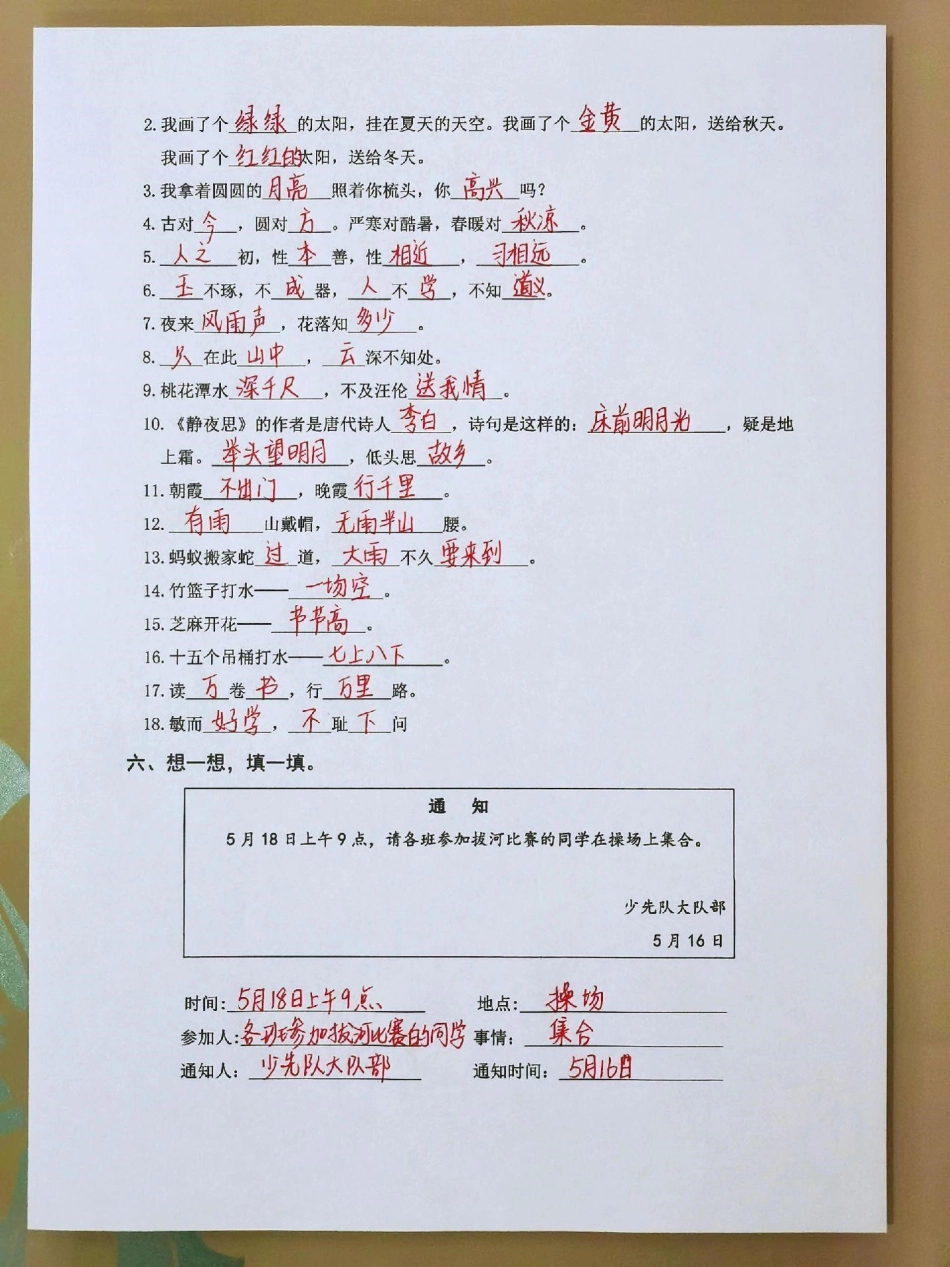 2.我画了个绿绿的太阳，挂在夏天的天空。我画了个金黄的太阳，送给秋天。
我画了个红红的太阳，送给冬天。
3.我拿着圆圆的月亮照着你梳头，你高兴吗？
4.古对今，圆对方。严寒对酷暑，春暖对秋凉。
5.人之初，性本善，性相近，习相远。
6.玉不琢，不成器，人不学，不知道义。
7.夜来风雨声，花落知多少。
8.只在此山中，云深不知处。
9.桃花潭水深千尺，不及汪伦送我情。
10.《静夜思》的作者是唐代诗人李白，诗句是这样的：床前明月光，疑是地
上霜。举头望明月，低头思故乡。
11.朝霞不出门，晚霞行千里。
12.有雨山戴帽，无雨半山腰。
13.蚂蚁搬家蛇过道，大雨不久要来到。
14.竹篮子打水——一场空。
15.芝麻开花——节节高。
16.十五个吊桶打水——七上八下。
17.读万卷书，行万里路。
18.敏而好学，不耻下问
六、想一想，填一填。
通 知
5月18日上午9点，请各班参加拔河比赛的同学在操场上集合。
少先队大队部
5月16日
时间：5月18日上午9点 地点：操场
参加人：各班参加拔河比赛的同学 事情：集合
通知人：少先队大队部 通知时间：5月16日